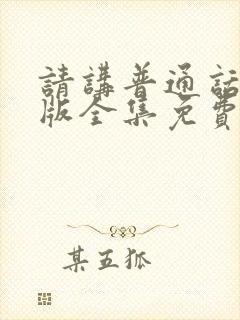 請講普通話
版全集免費
某五狐